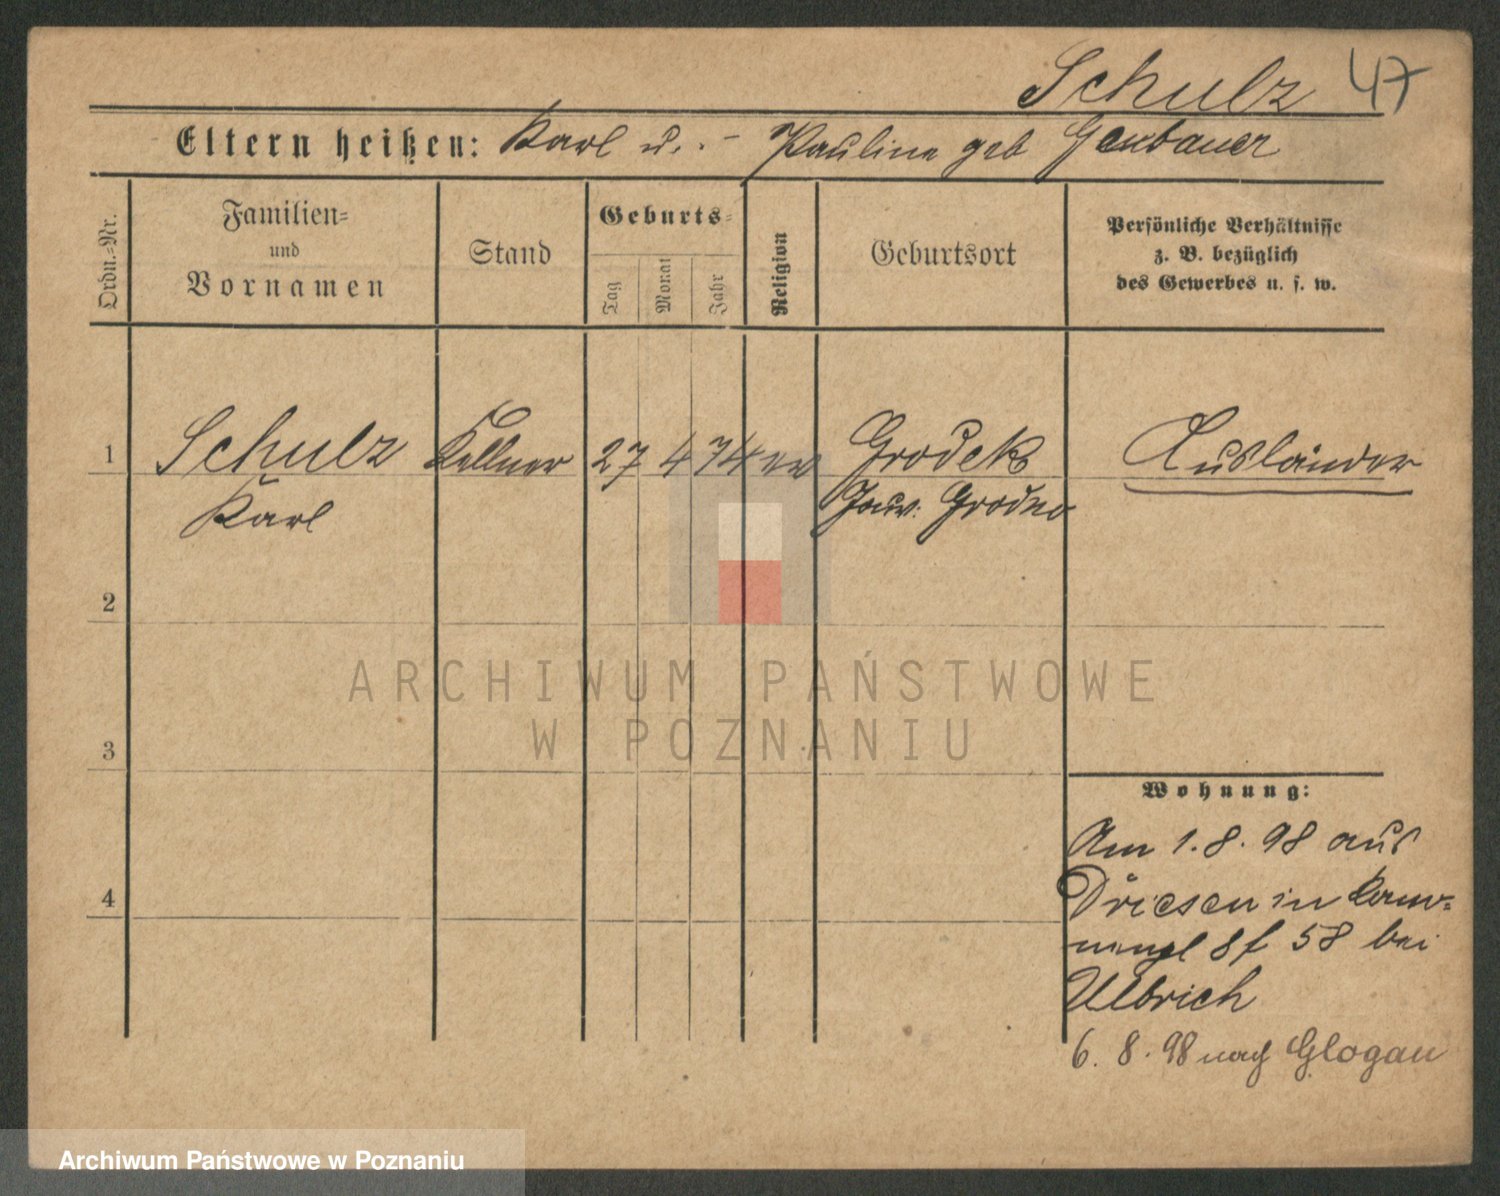 Schulz 47
Eltern heißen: Karl u. - Pauline geb
Ordn.-Nr.
Familien-
und
Vornamen
Stand
Geburts-
Tag
Monat
Jahr
Religion
Geburtsort
Persönliche Verhältnisse
z. B. bezüglich
des Gewerbes u. s. w.
1 Schulz Kellner 27 4 74 ev Grodek Ausländer
Karl Gouv. Grodno
2
ARCHIWUM PAŃSTWOWE
W POZNANIU
3
Wohnung:
Am 1.8.98 aus
4
Driesen in
58 bei
Ulbrich
6.8.98 nach Glogau
Archiwum Państwowe w Poznaniu